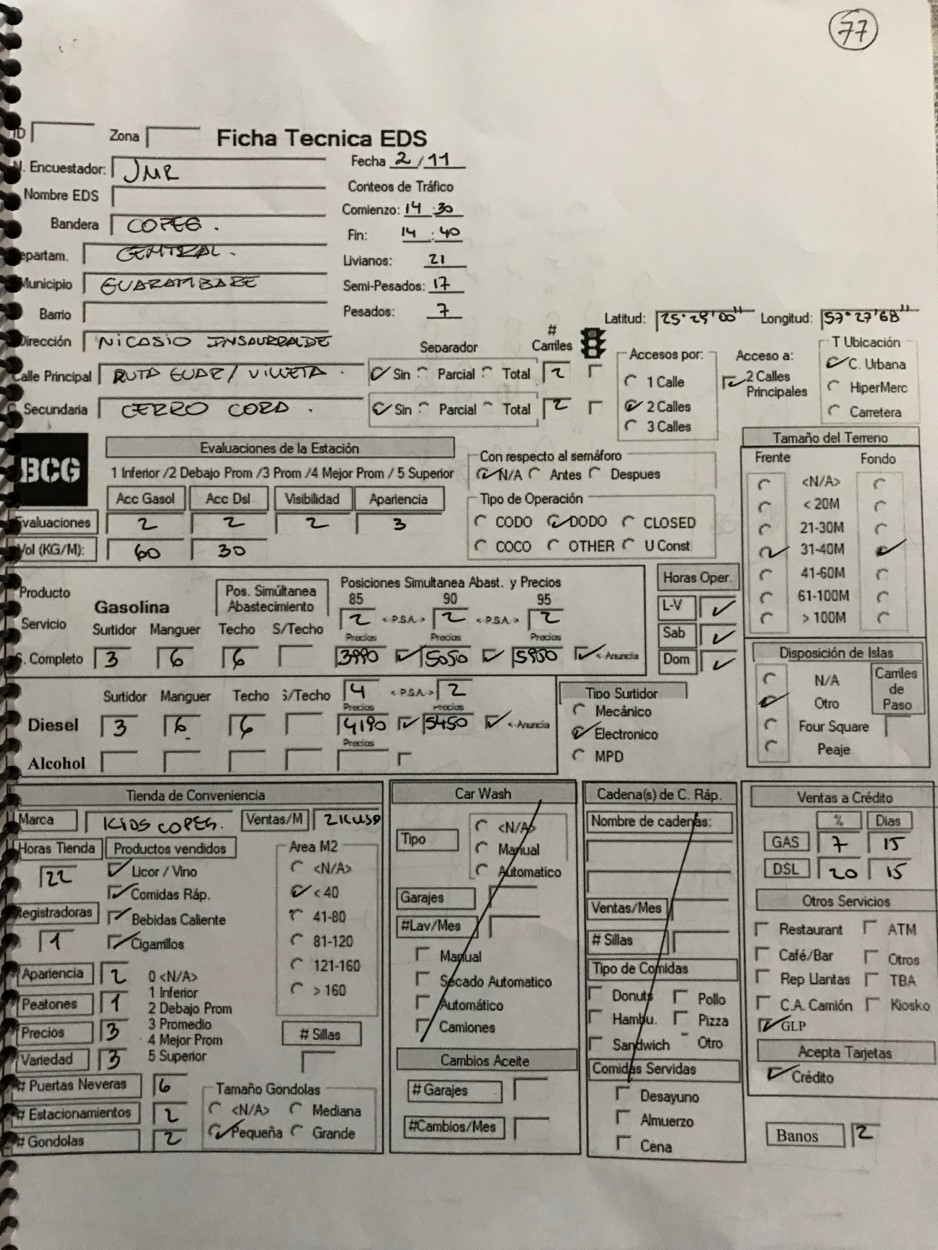 77
ID Zona Ficha Tecnica EDS
N. Encuestador: JMR Fecha 2/11
Nombre EDS Conteos de Tráfico
Bandera COPEG. Comienzo: 14:30
Departam. CENTRAL. Fin: 14:40
Livianos: 21
Municipio GUARAMBARE Semi-Pesados: 17
Barrio Pesados: 7
Latitud: Longitud: 57°27'68"
Dirección NICASIO INSAURRALDE Separador # Carriles Accesos por: Acceso a: T Ubicación
Calle Principal RUTA GUAR/VILLETA. Sin Parcial Total 2 1 Calle 2 Calles Principales C. Urbana
HiperMerc
C. Secundaria CERRO CORA. Sin Parcial Total 2 2 Calles Carretera
3 Calles
BCG Evaluaciones de la Estación Tamaño del Terreno
1 Inferior /2 Debajo Prom /3 Prom /4 Mejor Prom / 5 Superior Con respecto al semáforo Frente Fondo
N/A Antes Despues <N/A>
Acc Gasol Acc Dsl Visibilidad Apariencia Tipo de Operación < 20M
Evaluaciones 2 2 2 3 CODO DODO CLOSED 21-30M
Vol (KG/M): 60 30 COCO OTHER U Const 31-40M
41-60M
61-100M
> 100M
Producto Gasolina Pos. Simúltanea Abastecimiento Posiciones Simultanea Abast. y Precios Horas Oper.
85 90 95 L-V
Servicio 2 <-P.S.A.-> 2 <-P.S.A.-> 2 Sab
Surtidor Manguer Techo S/Techo Precios Precios Precios
S. Completo 3 6 6 3990 5050 5900 <-Anuncia Dom
Disposición de Islas
N/A Carriles de Paso
Otro
Four Square
Peaje
Surtidor Manguer Techo S/Techo 4 <-P.S.A.-> 2 Tipo Surtidor
Precios Precios Mecánico
Diesel 3 6 6 4190 5450 <-Anuncia Electronico
Precios
Alcohol MPD
Tienda de Conveniencia Car Wash Cadena(s) de C. Ráp. Ventas a Crédito
Marca KIOS COPEG. Ventas/M Nombre de cadenas: % Dias
Horas Tienda Productos vendidos Area M2 Tipo <N/A> GAS 7 15
22 Licor / Vino <N/A> Manual DSL 20 15
Comidas Ráp. < 40 Automatico Otros Servicios
Registradoras Bebidas Caliente 41-80 Garajes Ventas/Mes Restaurant ATM
1 Cigarrillos 81-120 #Lav/Mes # Sillas Café/Bar Otros
Apariencia 2 0 <N/A> 121-160 Manual Tipo de Comidas Rep Llantas TBA
Peatones 1 1 Inferior > 160 Secado Automatico Donuts Pollo C.A. Camión Kiosko
2 Debajo Prom Automático Hambu. Pizza GLP
Precios 3 3 Promedio # Sillas Camiones Sandwich Otro Acepta Tarjetas
4 Mejor Prom
Variedad 3 5 Superior Cambios Aceite Comidas Servidas Crédito
# Puertas Neveras 6 Tamaño Gondolas # Garajes Desayuno
# Estacionamientos 2 <N/A> Mediana Almuerzo
# Gondolas 2 Pequeña Grande #Cambios/Mes Cena Banos 2